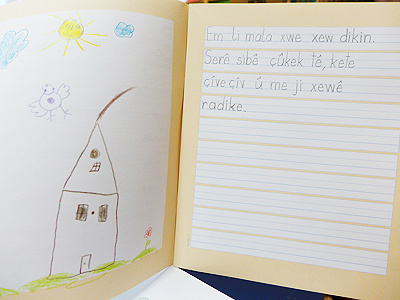 Em li mala xwe xew dikin.
Serê sibê çûkek tê, kete
çîveçîv û me ji xewê
radike.